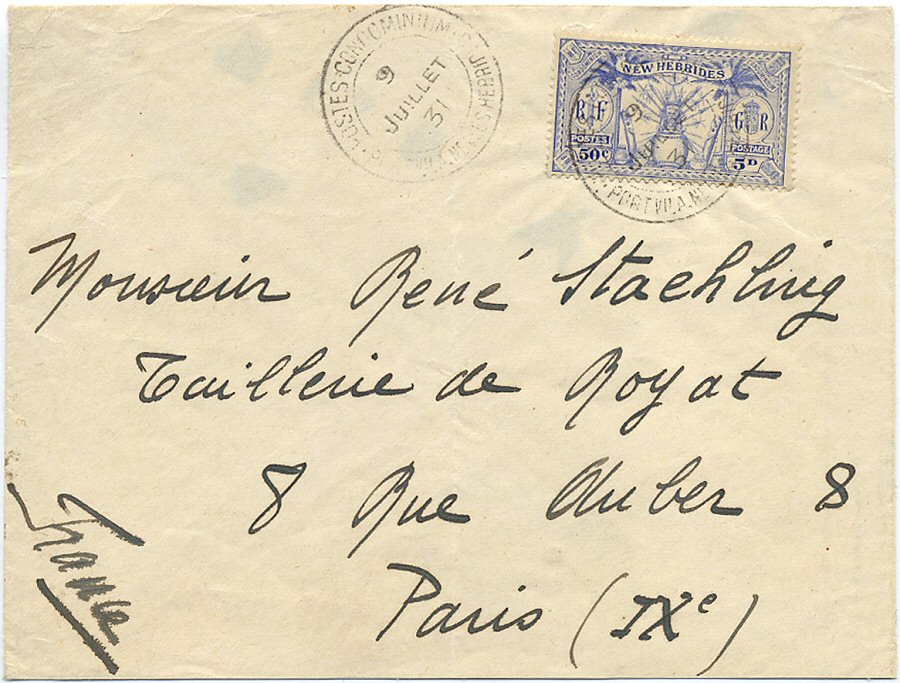 POSTES CONDOMINIUM
9
JUILLET
31
NEW HEBRIDES
RF
GR
POSTES
POSTAGE
50c
5D
9
PORT VILA
Monsieur René Staehling
Taillerie de Royat
8 Rue Auber 8
Paris (IXe)
France